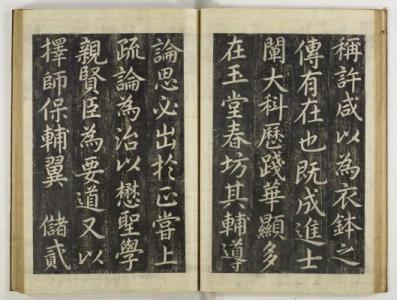 稱許咸以為衣鉢之
傳有在也既成進士
闡大科歷踐華顯多
在玉堂春坊其輔導
論思必出於正嘗上
疏論為治以懋聖學
親賢臣為要道又以
擇師保輔翼　儲貳